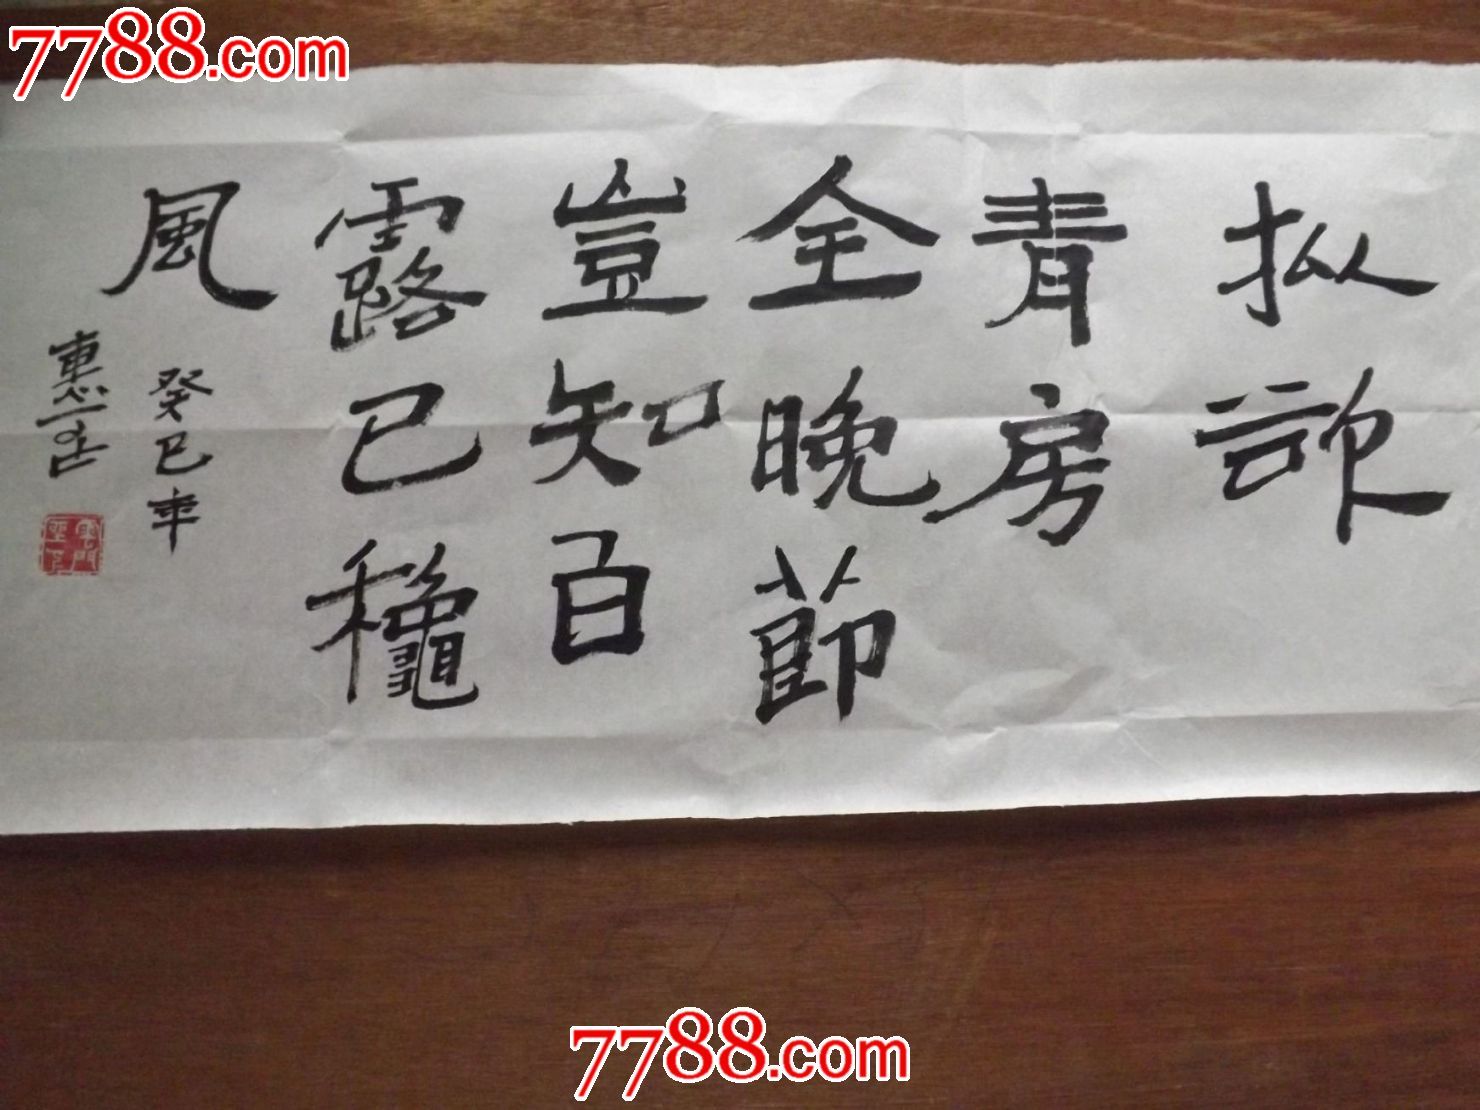 7788.com
拟欲
青房
全晚節
豈知白
露已龝
風
癸巳年
惠
7788.com